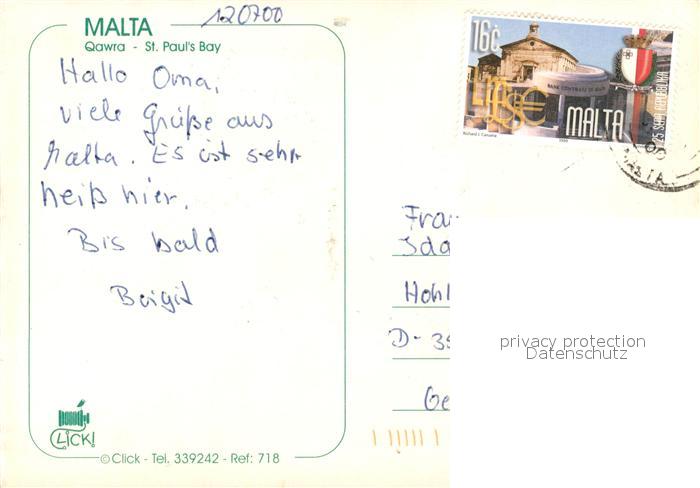 120700
MALTA
Qawra - St. Paul's Bay
Hallo Oma,
viele Grüße aus
Malta. Es ist sehr
heiß hier.
Bis bald
Birgit
CLICK!
© Click - Tel. 339242 - Ref: 718
16c
BANK CENTRALI TA' MALTA
LM £ $ €
MALTA
25 SENA REPUBBLIKA
Richard J. Caruana
1999
00
MALTA
Frau
Ida
Hohl
D-35
Ge
privacy protection
Datenschutz